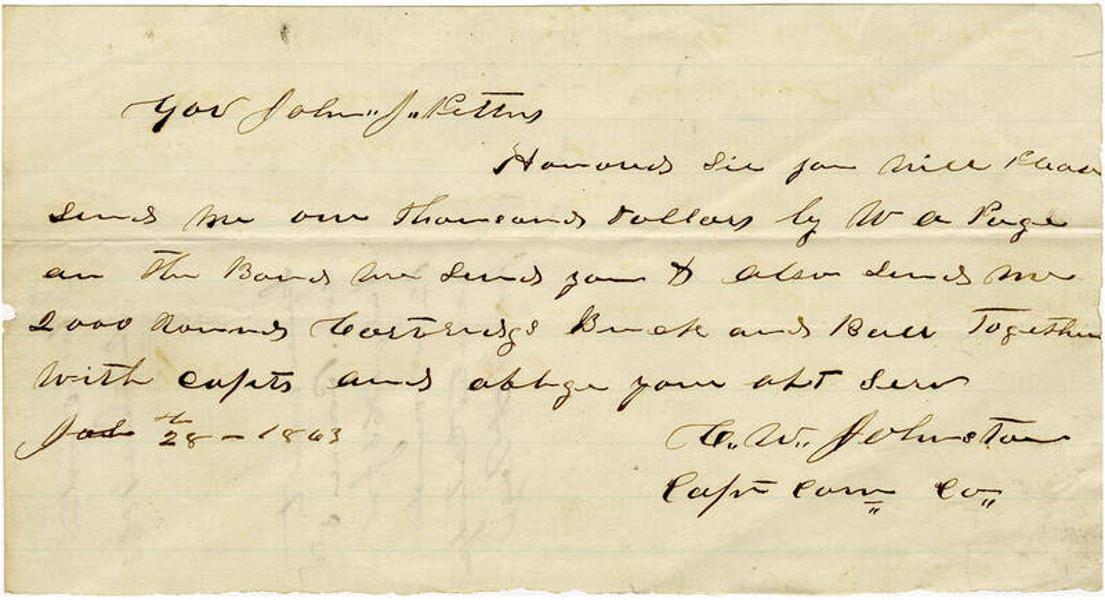 Gov John" J" Pettus
Honored Sir you will Please
send me one thousand dollars by W A Page
on the Bond we send you & also send me
2000 Rounds Cartridgs Buck and Ball Together
with capts and oblige your obt Serv
28th - 1863
C. W. Johnston
Capt Com Co